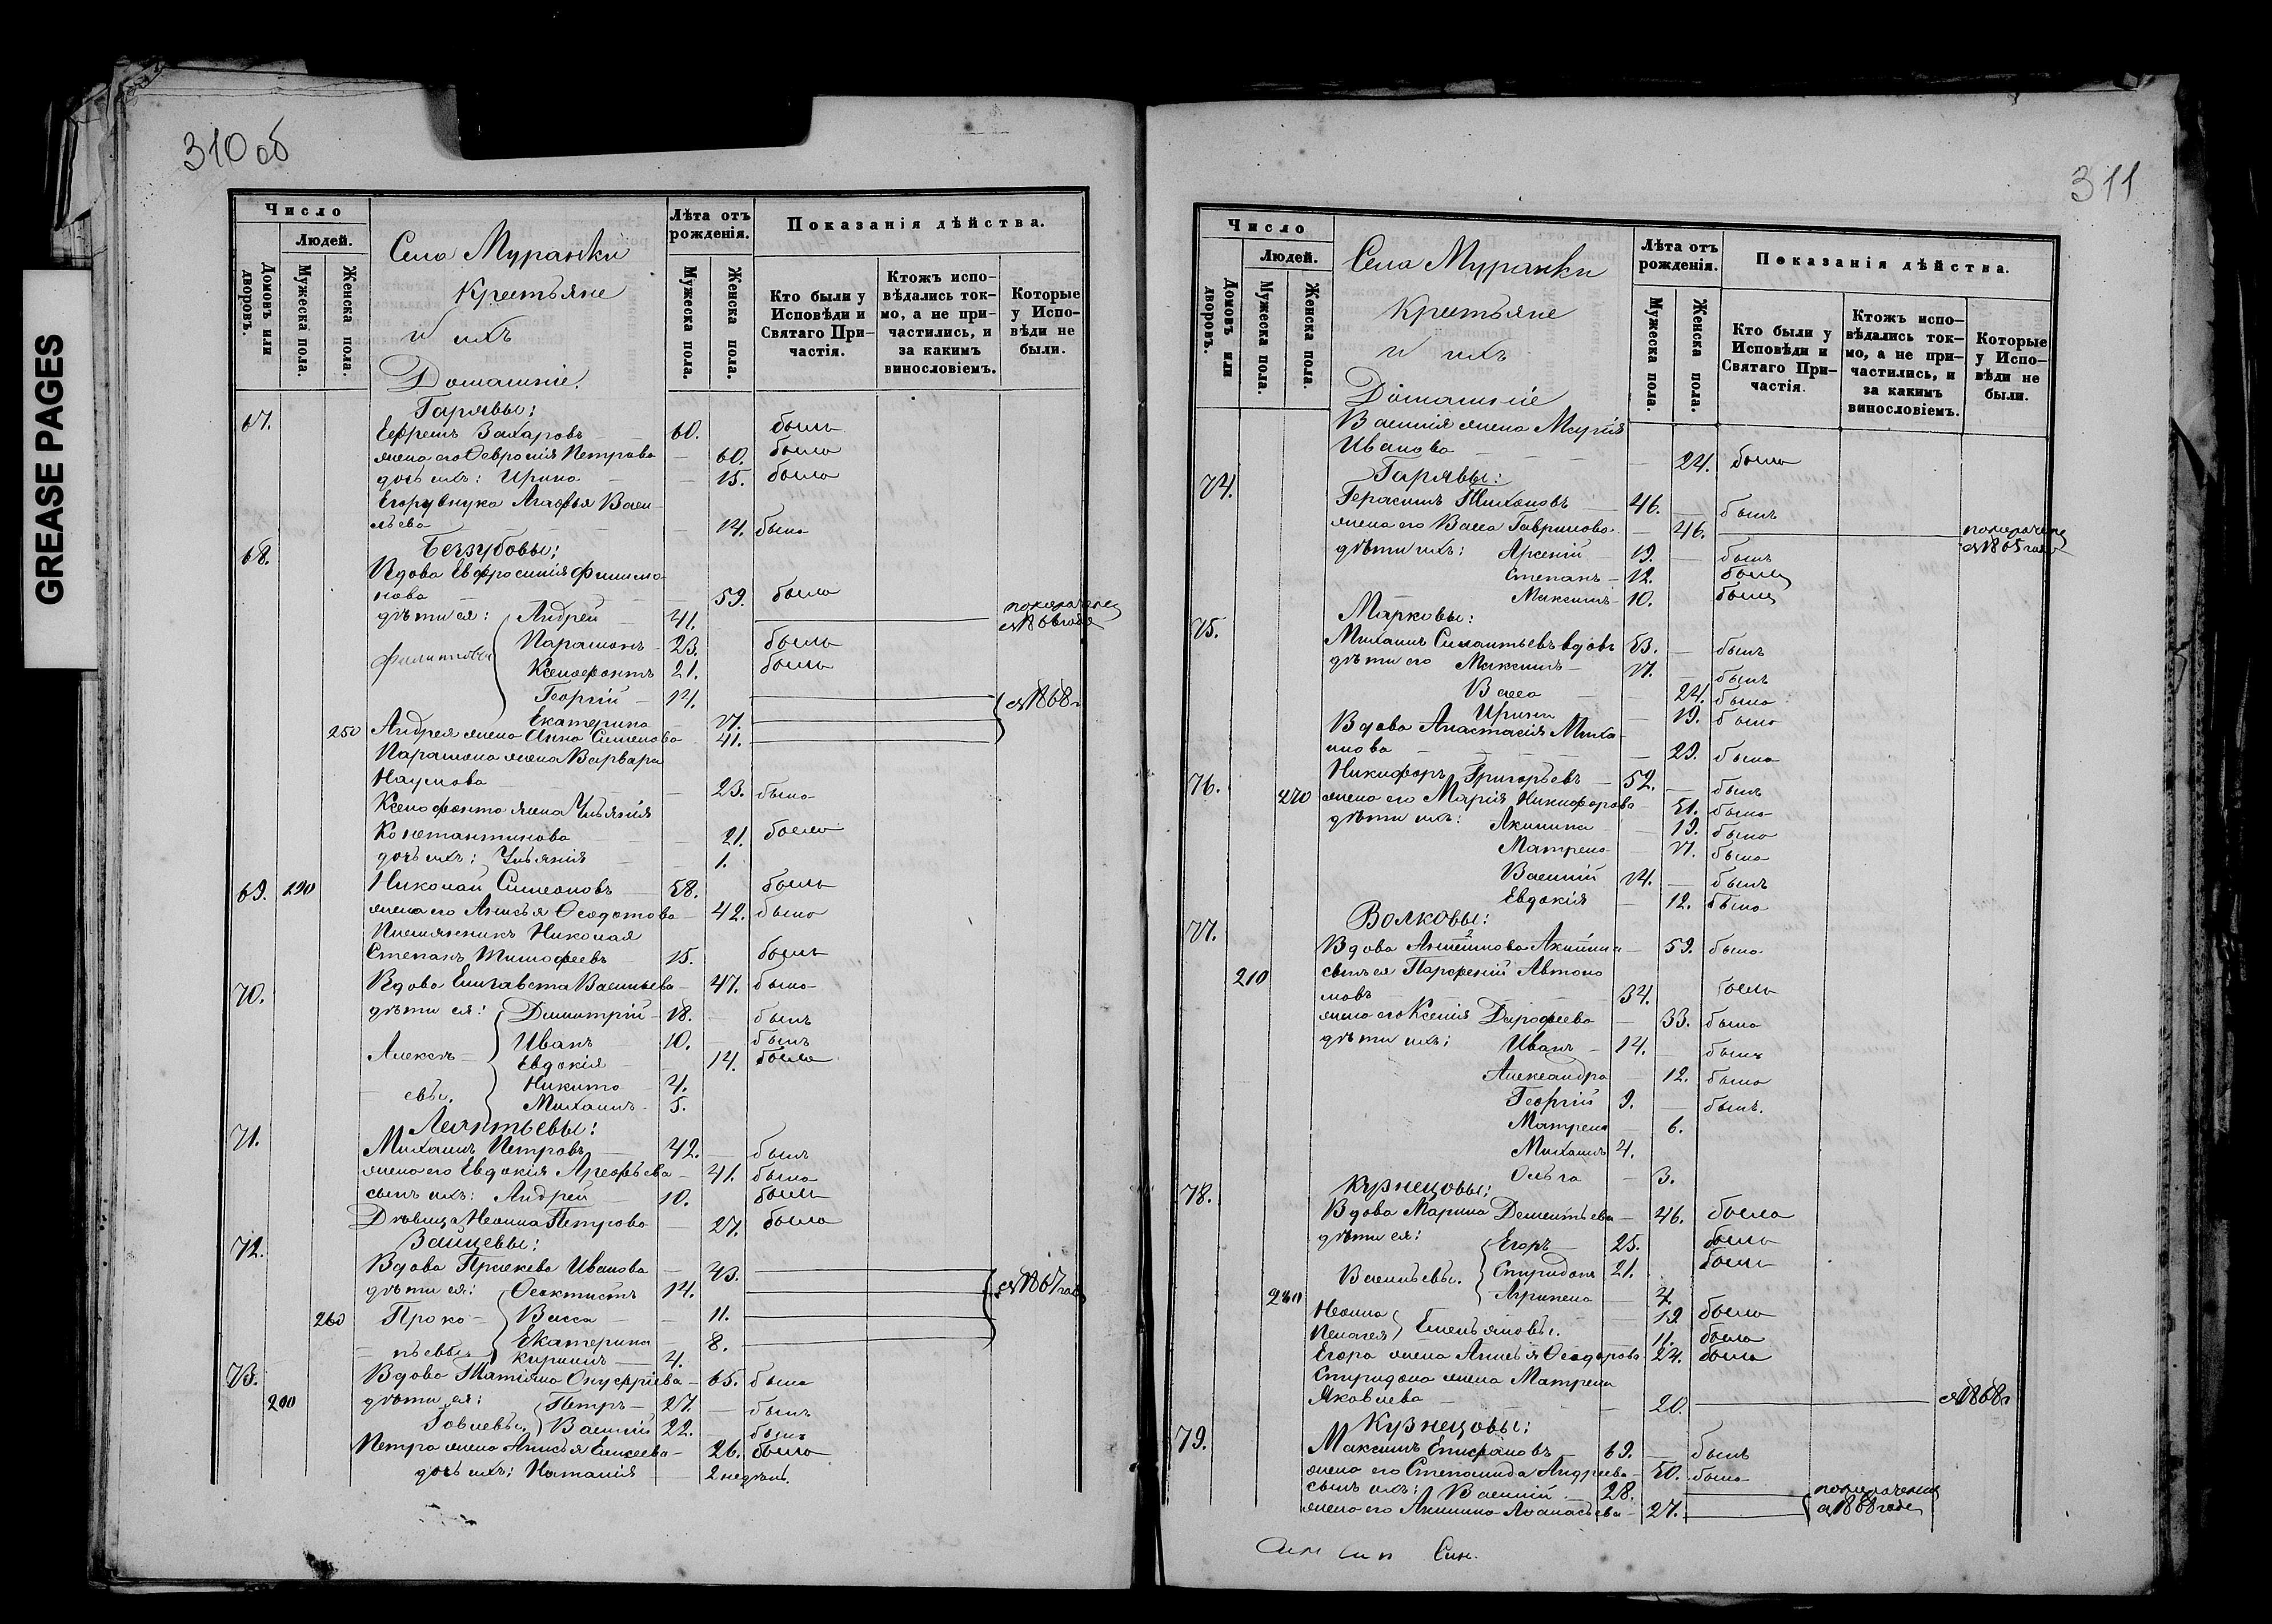 GREASE PAGES
310 об
Число
Людей.
Домовъ или дворовъ.
Мужеска пола.
Женска пола.
Села Муранки
Крестьяне
и ихъ
Домашніе.
Лѣта отъ рожденія.
Мужеска пола.
Женска пола.
Показанія дѣйства.
Кто были у Исповѣди и Святаго Причастія.
Ктожъ исповѣдались токмо, а не причастились, и за какимъ винословіемъ.
Которые у Исповѣди не были.
67. Гарявы:
Ефремъ Захаровъ — 60. былъ
жена его Февронія Петрова — 60. была
дочь ихъ: Ирина — 15. была
Егору внука Агафья Васи-
льева — 14. была
68. Беззубовы:
Вдова Евфросинія Филимо-
нова — 59. была
дѣти ея: Андрей — 41.
Филипповы Парамонъ — 23. былъ
Ксенофонтъ 21. былъ
Георгій — 14.
Екатерина — 17. 1868
250 Андрея жена Анна Симеонова 41.
Парамона жена Варвара
Наумова — 23. была
Ксенофонта жена Ульянія
Константинова — 21. была
дочь ихъ: Ульянія — 1.
69. 190 Николай Симеоновъ — 58. былъ
жена его Анисья Ѳеодотова — 42. была
Племянникъ Николая
Степанъ Тимофеевъ 15. былъ
70. Вдова Елизавета Васильева — 47. была
дѣти ея: Димитрій — 18. былъ
Иванъ 10. былъ
Алексѣ- Евдокія — 14. была
Никита 7.
евы. Михаилъ 5.
71. Леонтьевы:
Михаилъ Петровъ 42. былъ
жена его Евдокія Арефьева — 41. была
сынъ ихъ: Андрей — 10. былъ
Дѣвица Неонила Петрова — 27. была
72. Зайцевы:
Вдова Праскева Иванова — 43.
дѣти ея: Ѳеоктистъ 14. 1867 года
260 Проко- Васса — 11.
пьевы Екатерина — 8.
Кириллъ — 4.
73. Вдова Татіана Онуфріева — 65. была
200 дѣти ея: Петръ — 27. былъ
Іовлевы. Василій 22. былъ
Петра жена Анисья Елисеева — 26. была
дочь ихъ: Наталія 2 недѣли.
311
Число
Людей.
Домовъ или дворовъ.
Мужеска пола.
Женска пола.
Села Муранки
Крестьяне
и ихъ
Домашніе
Лѣта отъ рожденія.
Мужеска пола.
Женска пола.
Показанія дѣйства.
Кто были у Исповѣди и Святаго Причастія.
Ктожъ исповѣдались токмо, а не причастились, и за какимъ винословіемъ.
Которые у Исповѣди не были.
Василія жена Марія
Иванова — 24. была
74. Гарявы:
Герасимъ Тихоновъ — 46. былъ
жена его Васса Гаврилова — 46. 1865 года
дѣти ихъ: Арсеній — 19. былъ
Степанъ — 12. былъ
Максимъ — 10. былъ
75. Марковы:
Михаилъ Силантьевъ вдовъ 53. былъ
дѣти его Максимъ — 17. былъ
Васса — 24. была
Ирина — 19. была
Вдова Анастасія Миха-
илова — 29. была
76. Никифоръ Григорьевъ — 52. былъ
270 жена его Марія Никифорова 51. была
дѣти ихъ: Акилина — 19. была
Матрена — 17. была
Василій 14. былъ
Евдокія — 12. была
77. Волковы:
Вдова Акилина — 59. была
210 сынъ ея Парфеній Автоно
мовъ — 34. былъ
жена его Ксенія Дорофеева — 33. была
дѣти ихъ: Иванъ — 14. былъ
Александра — 12. была
Георгій 9. былъ.
Матрена — 6.
Михаилъ 4.
Ольга — 3.
78. Кузнецовы:
Вдова Марина Дементьева — 46. была
дѣти ея: Егоръ — 25. былъ
Васильевы. Спиридонъ 21. былъ
280 Агрипена — 7.
Неонила 12 была
Пелагея Емельяновы. 11. была
Егора жена Анисья Ѳеодорова 24. была
Спиридона жена Матрена
Яковлева — 20. 1868
79. Кузнецовы:
Максимъ Епифановъ — 69. былъ
жена его Степанида Андреева — 50. была
сынъ ихъ: Василій — 28.
жена его Акилина Аѳанасьева — 27. 1868 года